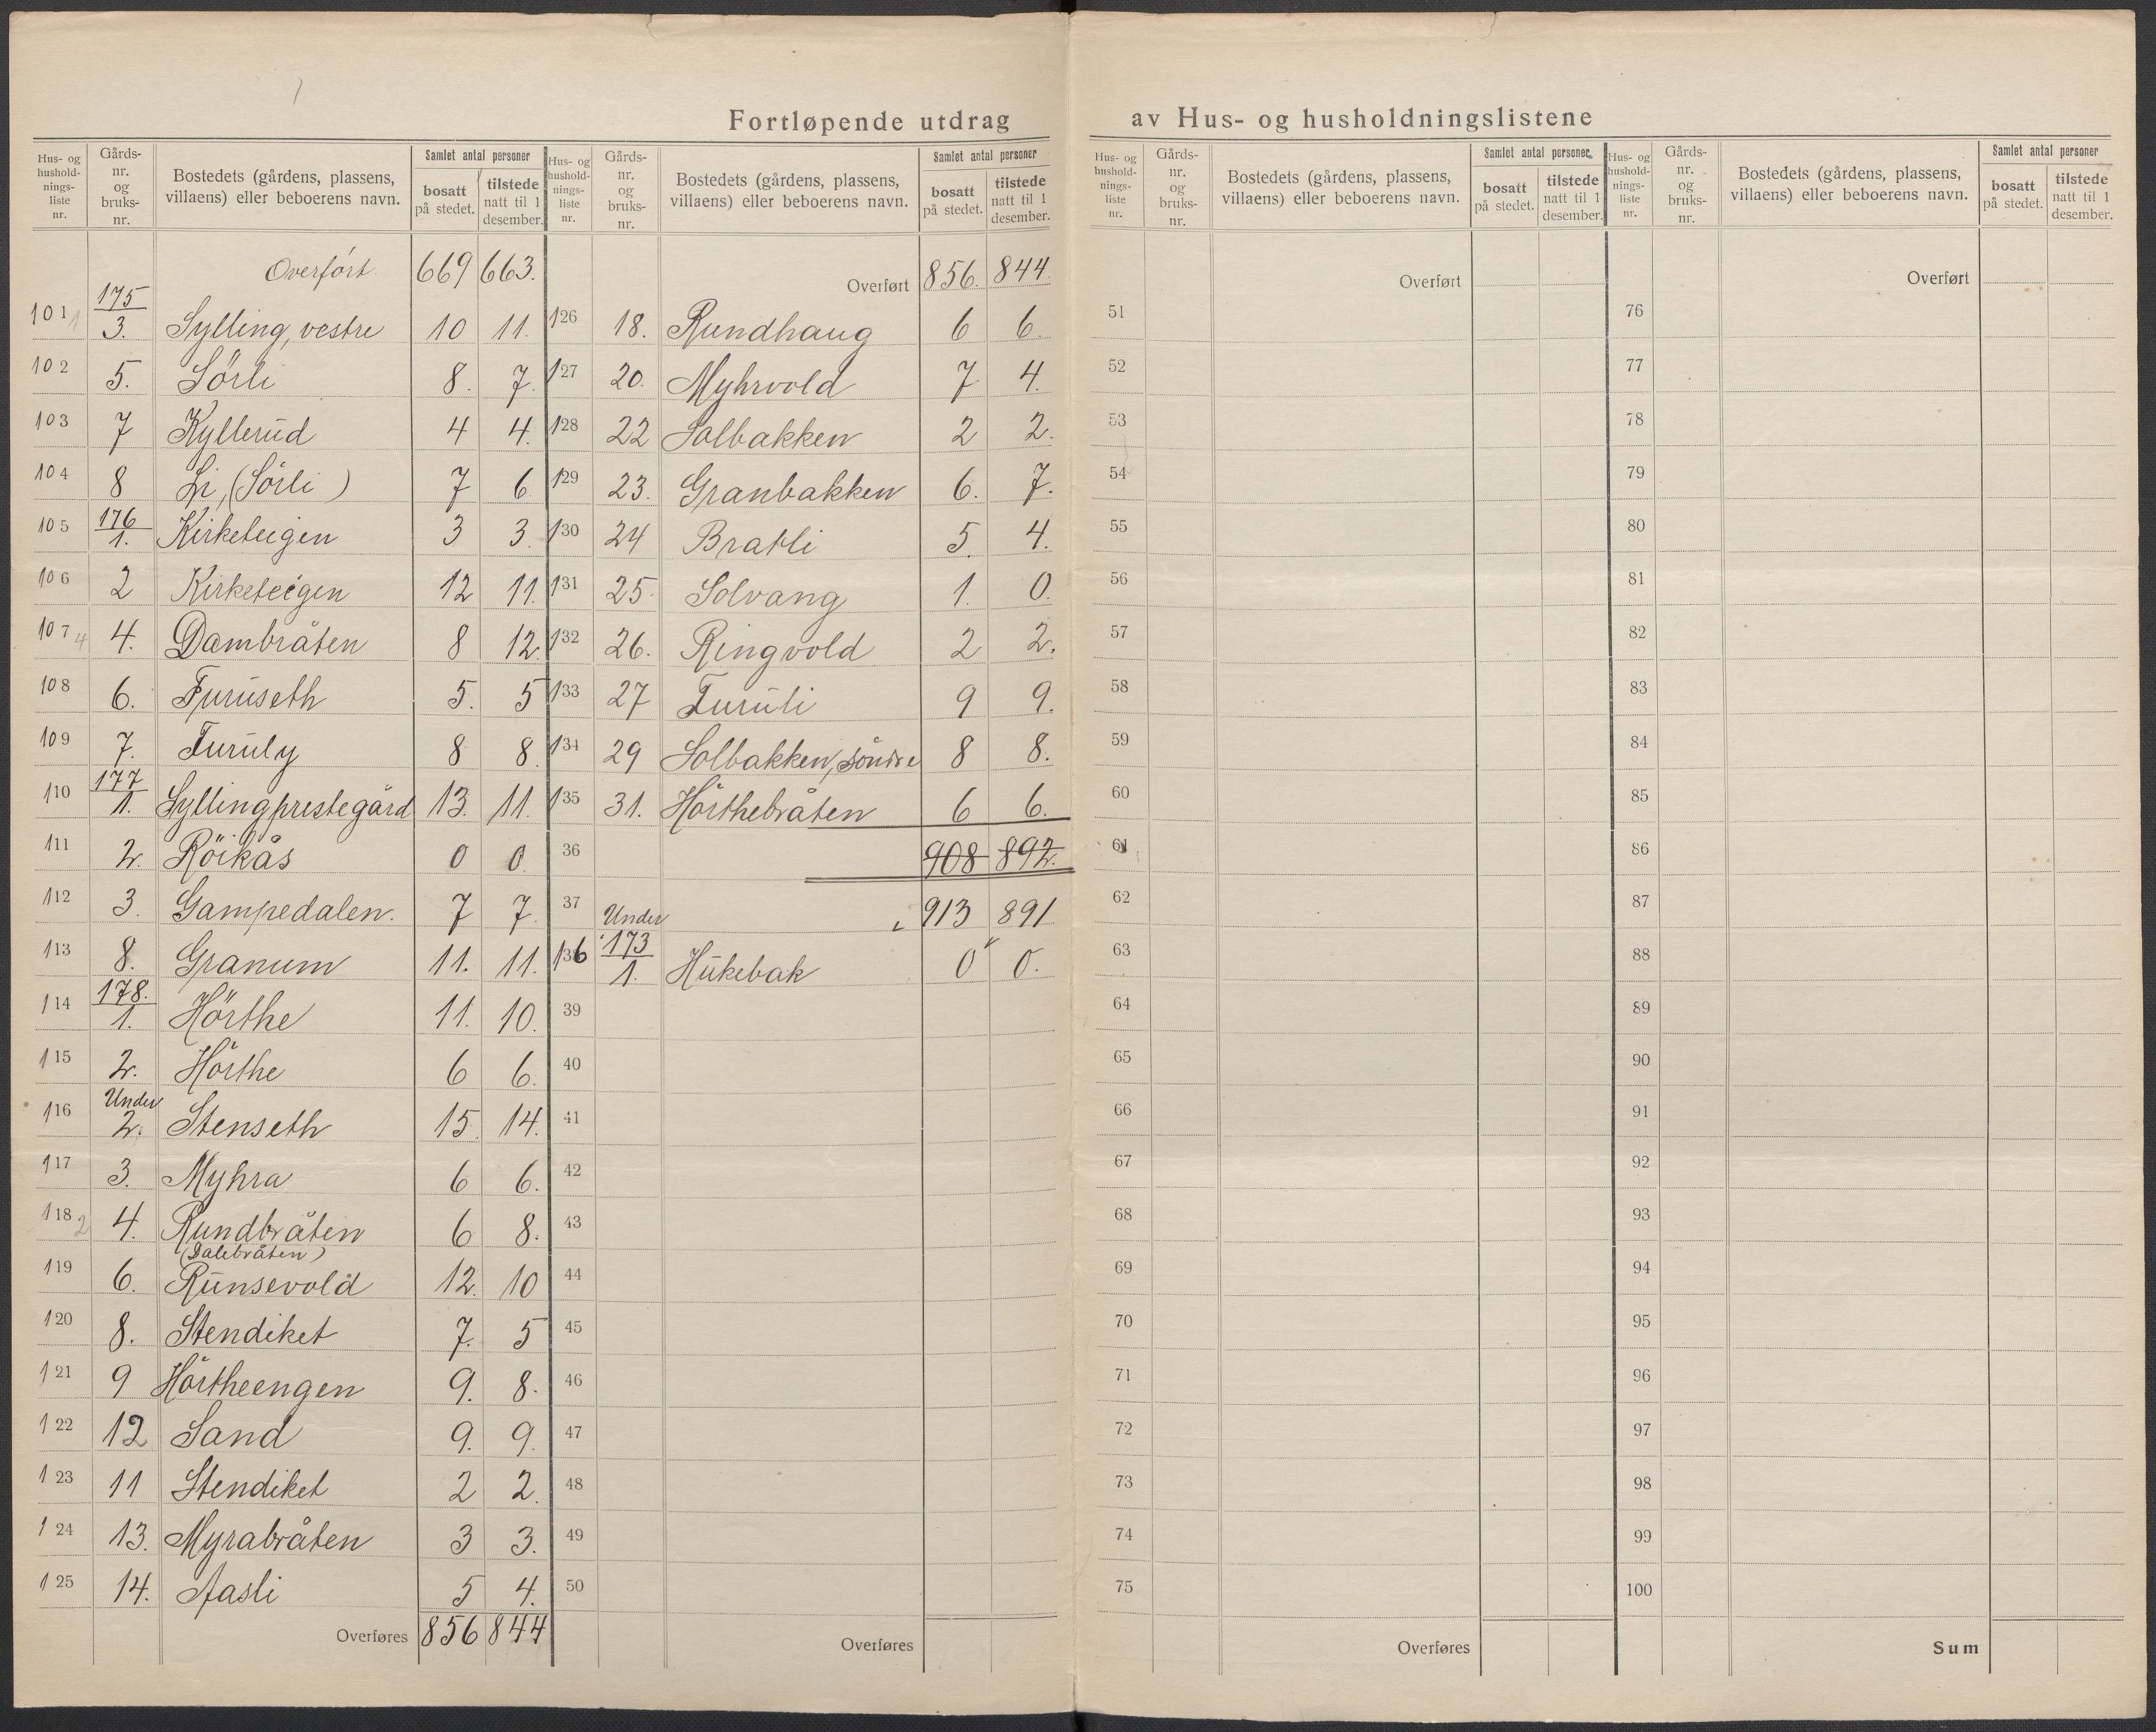 Fortløpende utdrag av Hus- og husholdningslistene
Hus- og hushold-nings-liste nr. | Gårds-nr. og bruks-nr. | Bostedets (gårdens, plassens, villaens) eller beboerens navn. | Samlet antal personer | bosatt på stedet. | tilstede natt til 1 desember.
Overført 669 663.
101 1 175/3. Sylling, vestre 10 11.
102 5. Sörli 8. 7.
103 7 Kyllerud 4 4.
104 8 Li, (Sörli) 7 6
105 176/1. Kirketeigen 3 3.
106 2 Kirketeigen 12 11.
107 4 4. Dambråten 8 12.
108 6. Furuseth 5. 5
109 7. Furuly 8 8.
110 177/1. Syllingprestegård 13. 11.
111 2. Röikås 0 0.
112 3. Gampedalen. 7 7.
113 8. Granum 11. 11.
114 178./1. Hörthe 11. 10.
115 2. Hörthe 6 6.
116 Under 2. Stenseth 15. 14.
117 3. Myhra 6 6.
118 2 4. Rundbråten 6 8.
(Dalebråten)
119 6. Runsevold 12. 10
120 8. Stendiket 7. 5
121 9 Hörtheengen 9. 8.
122 12 Sand 9. 9.
123 11 Stendiket 2 2.
124 13. Myrabråten 3 3.
125 14. Aasli 5 4.
Overføres 856 844
Hus- og hushold-nings-liste nr. | Gårds-nr. og bruks-nr. | Bostedets (gårdens, plassens, villaens) eller beboerens navn. | Samlet antal personer | bosatt på stedet. | tilstede natt til 1 desember.
Overført 856. 844.
126 18. Rundhaug 6 6.
127 20. Myhrvold 7 4.
128 22 Solbakken 2 2.
129 23. Granbakken 6. 7.
130 24 Bratli 5. 4.
131 25. Solvang 1. 0.
132 26. Ringvold 2 2.
133 27 Furuli 9 9.
134 29 Solbakken, söndre 8 8.
135 31. Hörthebråten 6 6.
36 908 892.
37 913 891
136 Under 173/1. Hukebak 0 0.
39
40
41
42
43
44
45
46
47
48
49
50
Overføres
Hus- og hushold-nings-liste nr. | Gårds-nr. og bruks-nr. | Bostedets (gårdens, plassens, villaens) eller beboerens navn. | Samlet antal personer | bosatt på stedet. | tilstede natt til 1 desember.
Overført
51
52
53
54
55
56
57
58
59
60
61
62
63
64
65
66
67
68
69
70
71
72
73
74
75
Overføres
Hus- og hushold-nings-liste nr. | Gårds-nr. og bruks-nr. | Bostedets (gårdens, plassens, villaens) eller beboerens navn. | Samlet antal personer | bosatt på stedet. | tilstede natt til 1 desember.
Overført
76
77
78
79
80
81
82
83
84
85
86
87
88
89
90
91
92
93
94
95
96
97
98
99
100
Sum